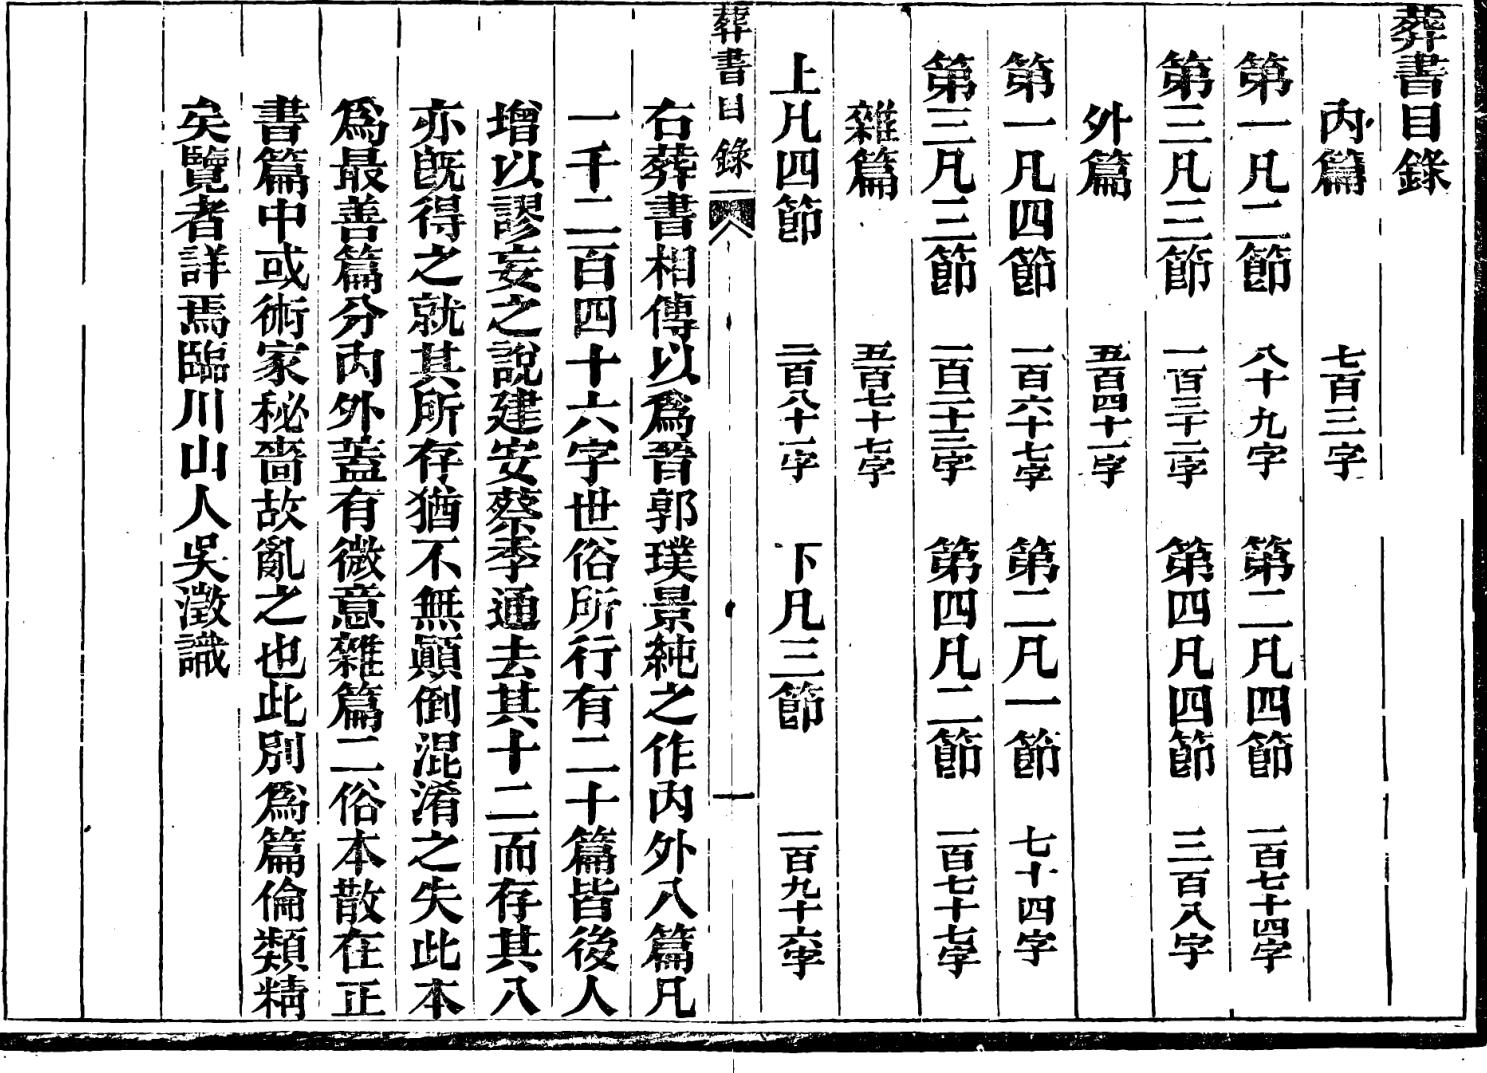 葬書目錄
內篇 七百三字
第一凡二節 八十九字 第二凡四節 一百七十四字
第三凡三節 一百三十二字 第四凡四節 三百八字
外篇 五百四十一字
第一凡四節 一百六十七字 第二凡一節 七十四字
第三凡三節 一百二十三字 第四凡二節 一百七十七字
雜篇 五百七十七字
上凡四節 三百八十一字 下凡三節 一百九十六字
葬書目錄 一
右葬書相傳以爲晉郭璞景純之作內外八篇凡
一千二百四十六字世俗所行有二十篇皆後人
增以謬妄之說建安蔡季通去其十二而存其八
亦旣得之就其所存猶不無顚倒混淆之失此本
爲最善篇分內外蓋有微意雜篇二俗本散在正
書篇中或術家秘嗇故亂之也此別爲篇倫類精
矣覽者詳焉臨川山人吳澂識